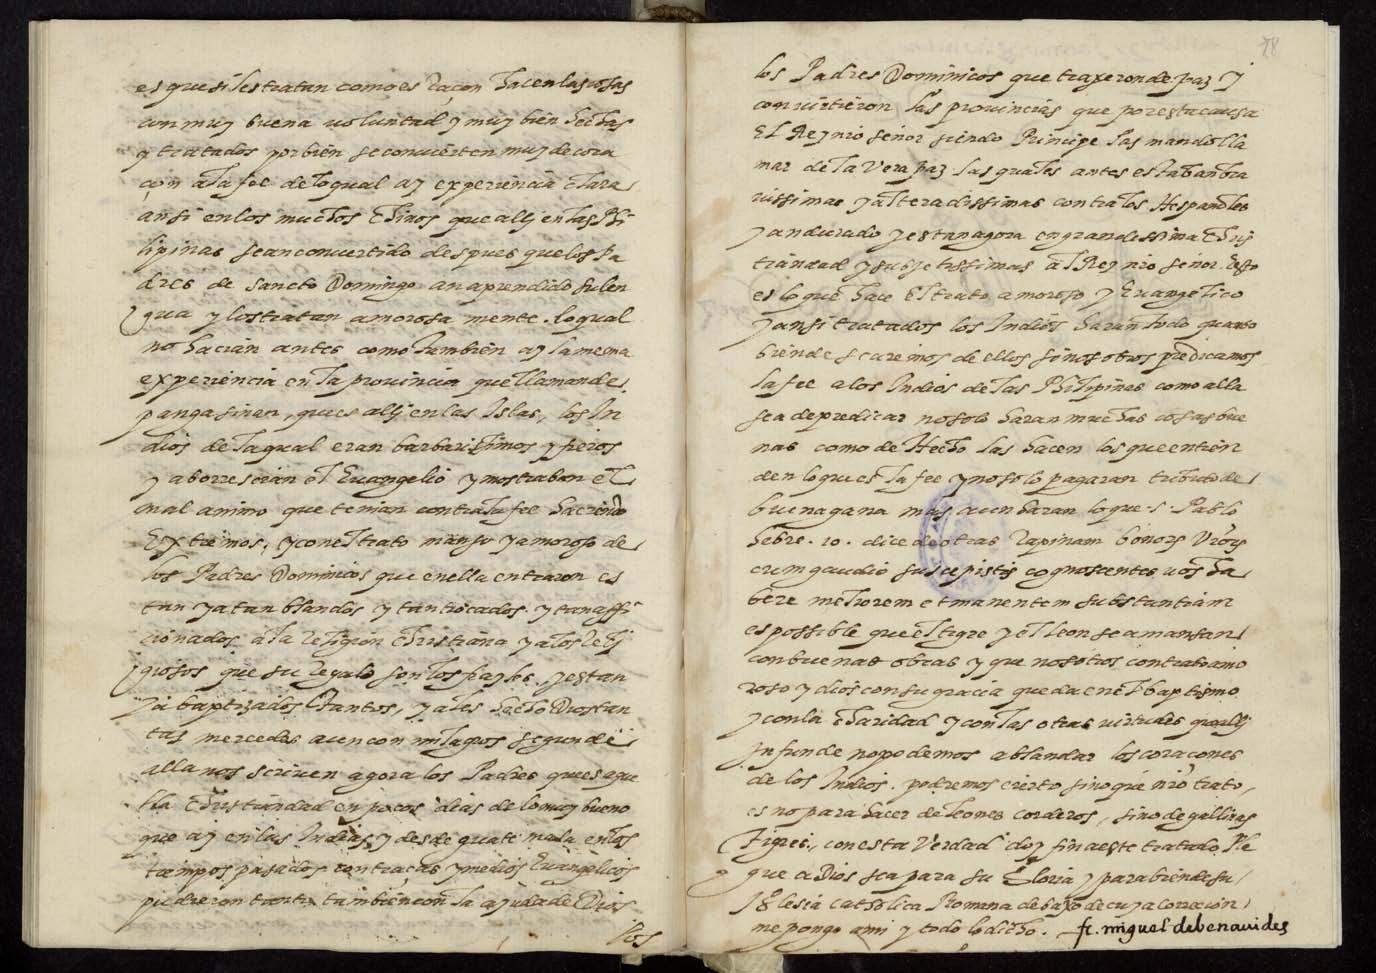 es que si les tratan como es raçon hacen las cosas
con muy buena voluntad y muy bien hechas
y tratados por bien se convierten muy de cora
çon a la fee de lo qual ay experiencia clara
ansi en los muchos chinos que alli en las Phi
lipinas se an convertido despues que los Pa
dres de Sancto Domingo an aprendido su len
gua y los tratan amorosa mente. lo qual
no hacian antes como tambien ay la mesma
experiencia en la provincia que llaman de
pangasinan, que es alli en las Islas, los In
dios de la qual eran barbarissimos y fieros
y aborrescian el Evangelio y mostraban el
mal animo que tenian contra la fee haciendo
Extremos, y con el trato manso y amoroso de
los Padres Dominicos que en ella entraron es
tan ya tan blandos y tan trocados y tan affi
cionados a la religion christiana y a los reli
giosos que su regalo son los pades. y estan
ya baptizados tantos, y ales hecho Dios tan
tas mercedes aun con milagros segun de
alla nos scriven agora los Padres que es aque
lla christiandad en pocos dias de lo muy bueno
que ay en las Indias, y desde guatemala en los
tiempos pasados con traças y medios Evangelicos
pudieron tanto tambien con la ayuda de Dios
los
78
los Padres Dominicos que traxeron de paz y
convirtieron las provincias que por esta causa
El Rey nro señor siendo Principe las mando lla
mar de la Vera paz las quales antes estaban bra
vissimas y alteradissimas contra los Hespañoles
y an durado y estan agora en grandissima chris
tiandad y subjetissimas al Rey nro señor. esto
es lo que hace el trato amoroso y Evangelico
y ansi tratados los Indios haran todo quanto
bien deseáremos de ellos si nosotros predicamos
la fee a los Indios de las Philipinas como alla
se a de predicar no solo haran muchas cosas bue
nas como de Hecho las hacen los que entien
den lo que es la fee y no solo pagaran tributo de
buena gana mas aun haran lo que S. Pablo
hebre. 10. dice de otras Rapinam bonorum vrorum
cum gaudio suscepistis cognoscentes vos ha
bere meliorem et manentem substantiam
es possible que el tigre y el leon se amansan
con buenas obras y que nosotros con trato amo
roso y dios con su gracia que da en el baptismo
y con la charidad y con las otras virtudes que alli
infunde no podemos ablandar los coraçones
de los Indios. podremos cierto, sino que nro trato,
es no para hacer de leones corderos, sino de gallinas
Tigres, con esta verdad doy fin a este tratado. Ple
gue a Dios sea para su Gloria y para bien de su
Iglesia catholica Romana debaxo de cuya correction
me pongo a mi y todo lo dicho. fr. miguel de benavides